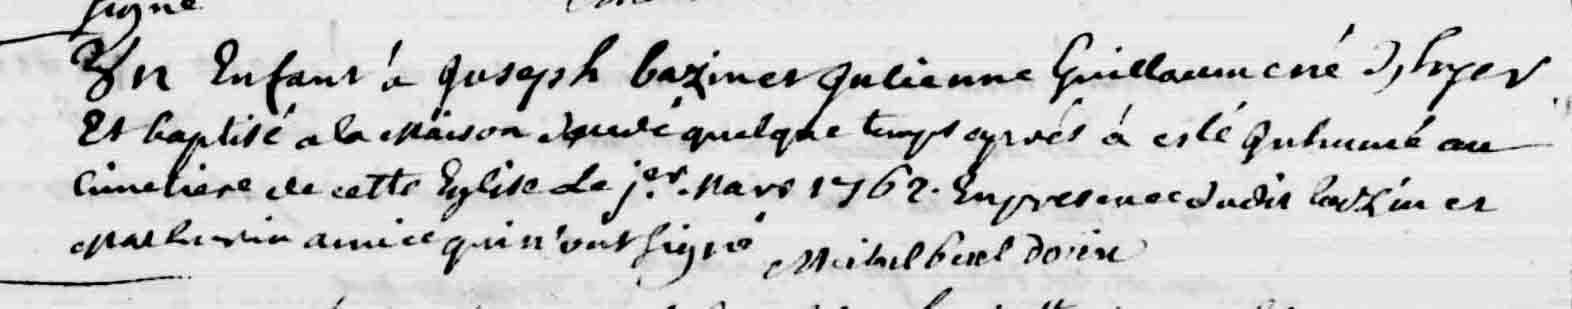 signé
Un Enfant à Joseph bazin et Julienne Guillaume né d'hyer
Et baptisé a la Maison décédé quelque temps après à esté Inhumé au
Cimetiere de cette Eglise Le j.er Mars 1762. En presence dudit bazin et
Mathurin amice qui n'ont signé Michel buel doyen